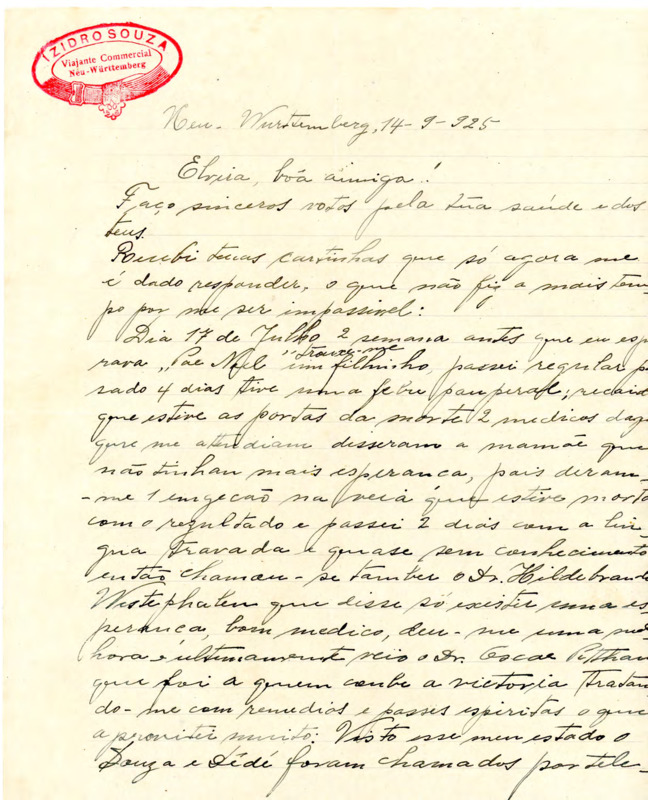 IZIDRO SOUZA
Viajante Commercial
Nêu-Württemberg
Neu-Wurttemberg, 14-9-925
Elvira, bôa amiga!
Faço sinceros votos pela tua saúde e dos
teus.
Recebi tuas cartinhas que só agora me
é dado responder, o que não fiz a mais tem-
po por me ser impassivel:
Dia 17 de Julho 2 semana antes que eu espe
rava "Pae Noel" trouxe-me um filhinho, passei regular p
sado 4 dias tive uma febre pauperal; recaid
que estive as portas da morte 2 medicos daq
que me atendiam disseram a mamãe que
não tinhan mais esperanca, pois deram-
-me 1 emgecão na veiá que estive morta
com o regultado e passei 2 dias com a lin
gua travada e quase sem conhecimento
então chamou-se tambem o Dr. Hildebrand
Westephalem que disse só existir uma es
peranca, bom medico, deu-me uma mel
hora e últimamente veio o Dr. Oscar Pithan
que foi a quem coube a victoria tratan
do-me com remedios e passes espiritas o que
aproveitei muito: Visto esse meu estado o
Souza e Dédé foram chamados por tele-